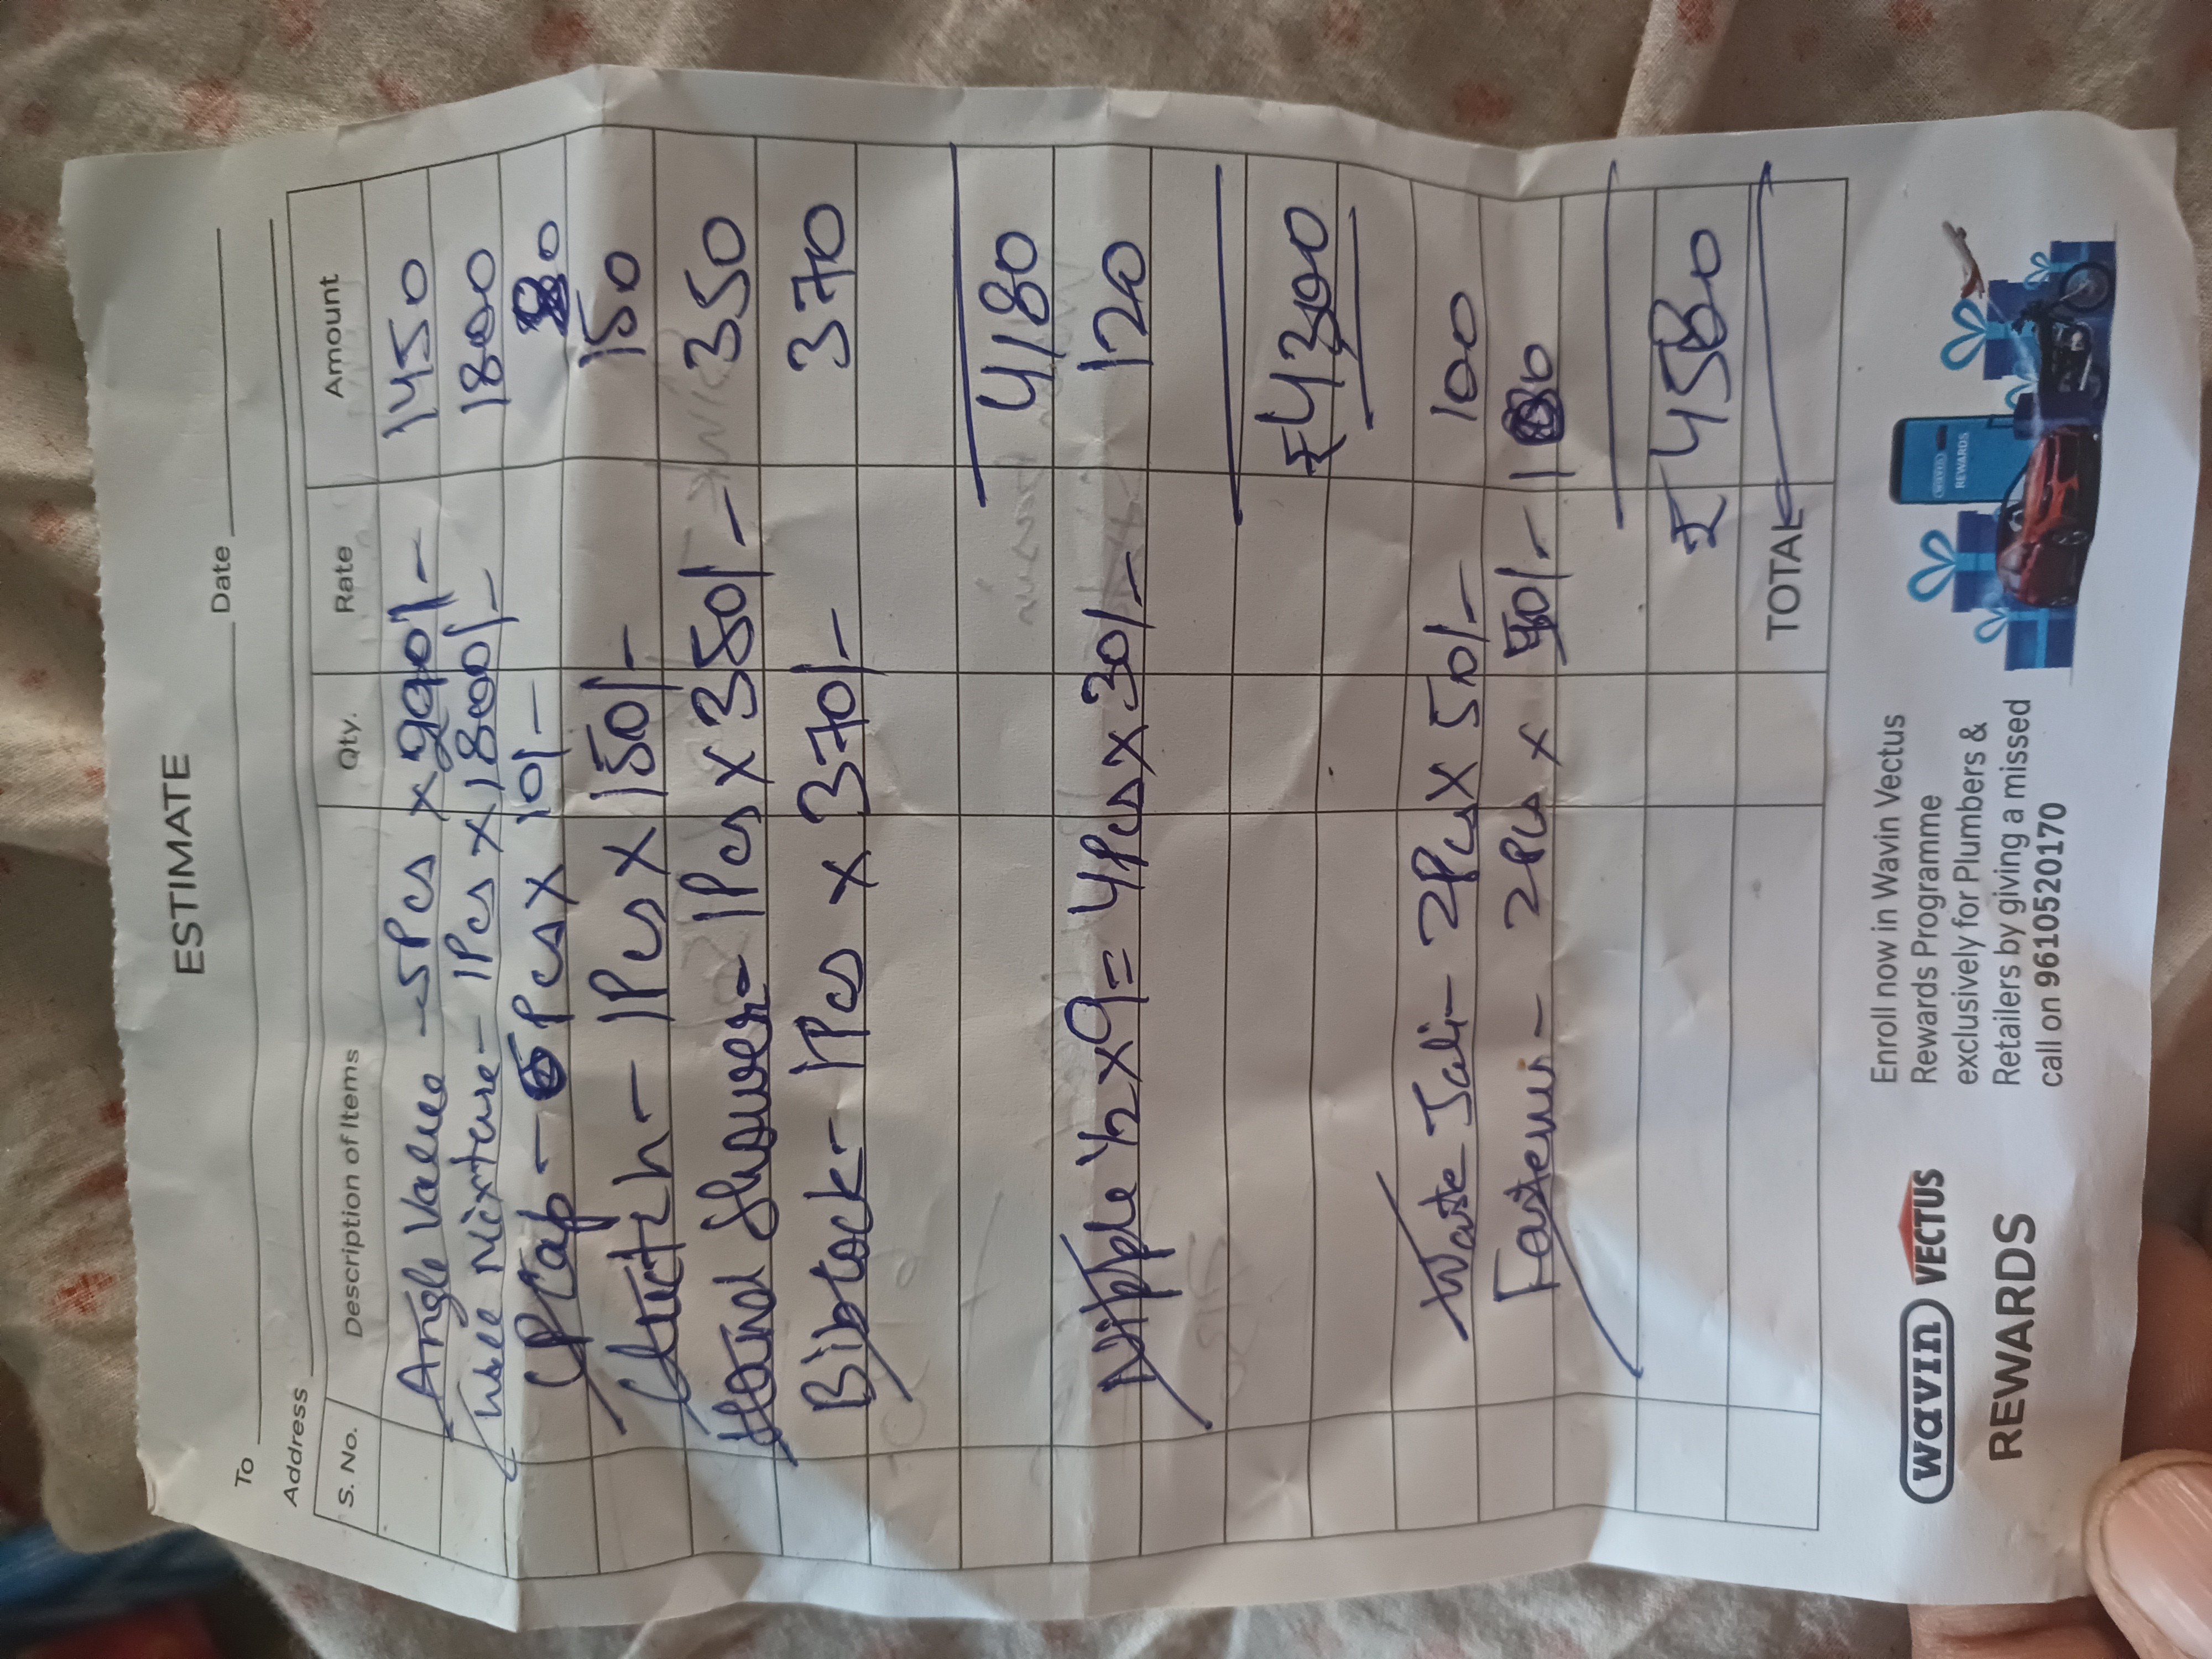 ESTIMATE
To Date
Address
S. No. Description of Items Qty. Rate Amount
Angle Valve - 5Pcs x 290/- 1450
Wall Mixture - 1Pcs x 1800/- 1800
Pcs x 10/-
1Pcs x 150/- 150
Hand Shower - 1Pcs x 350/- 350
Bibcock - 1Pcs x 370/- 370
4180
Nipple 1/2 x 9 = 4Pcs x 30/- 120
₹ 4300
Waste Jali - 2Pcs x 50/- 100
2Pcs x
₹ 4580
TOTAL
wavin VECTUS
REWARDS
Enroll now in Wavin Vectus
Rewards Programme
exclusively for Plumbers &
Retailers by giving a missed
call on 9610520170
WAVIN
REWARDS